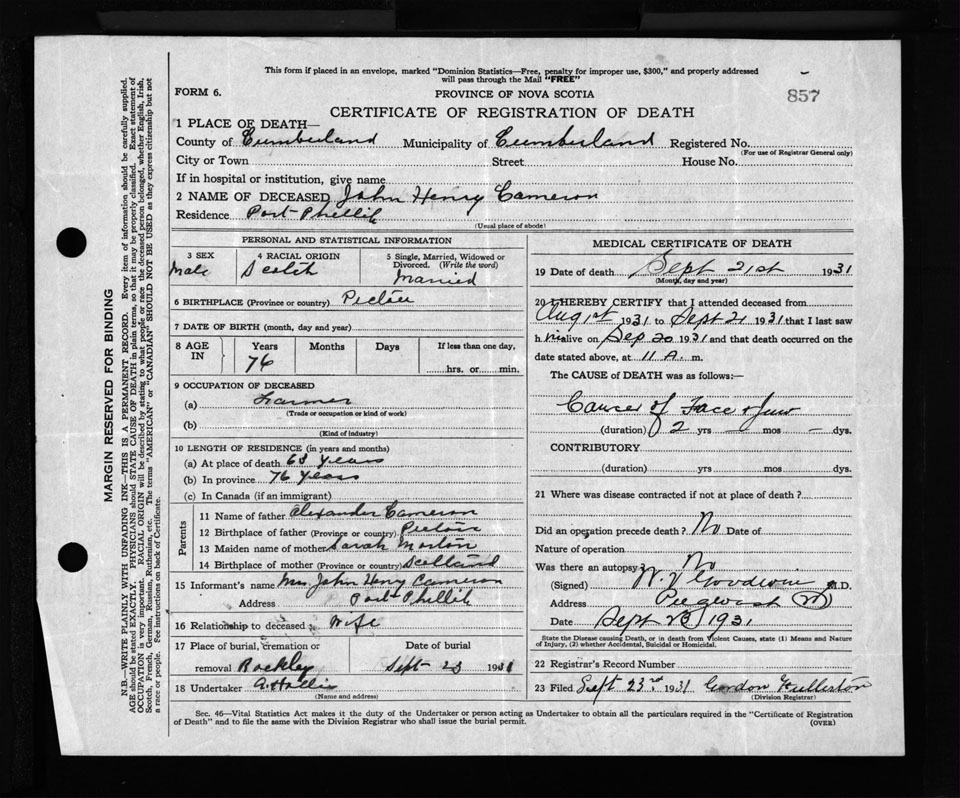 This form if placed in an envelope, marked "Dominion Statistics—Free, penalty for improper use, $300," and properly addressed
will pass through the Mail "FREE"
FORM 6.
PROVINCE OF NOVA SCOTIA
857
CERTIFICATE OF REGISTRATION OF DEATH
1 PLACE OF DEATH—
County of Cumberland Municipality of Cumberland Registered No.
(For use of Registrar General only)
City or Town Street House No.
If in hospital or institution, give name
2 NAME OF DECEASED John Henry Cameron
Residence Port Phillik
(Usual place of abode)
PERSONAL AND STATISTICAL INFORMATION
3 SEX 4 RACIAL ORIGIN 5 Single, Married, Widowed or
Divorced. (Write the word)
Male Scotch Married
6 BIRTHPLACE (Province or country) Pictou
7 DATE OF BIRTH (month, day and year)
8 AGE IN Years Months Days If less than one day,
76 hrs. or min.
9 OCCUPATION OF DECEASED
(a) Farmer
(Trade or occupation or kind of work)
(b)
(Kind of industry)
10 LENGTH OF RESIDENCE (in years and months)
(a) At place of death 63 years
(b) In province 76 years
(c) In Canada (if an immigrant)
Parents
11 Name of father Alexander Cameron
12 Birthplace of father (Province or country) Pictou
13 Maiden name of mother Sarah Morton
14 Birthplace of mother (Province or country) Scotland
15 Informant's name Mrs John Henry Cameron
Address Port Phillik
16 Relationship to deceased Wife
17 Place of burial, cremation or Date of burial
removal Rockley Sept 23 1931
18 Undertaker A. Hollis
(Name and address)
MEDICAL CERTIFICATE OF DEATH
19 Date of death Sept 21st 1931
(Month, day and year)
20 I HEREBY CERTIFY that I attended deceased from
Aug 1st 1931 to Sept 21 1931 that I last saw
h im alive on Sep 20 1931 and that death occurred on the
date stated above, at 11 A. m.
The CAUSE of DEATH was as follows:—
Cancer of Face & Jaw
(duration) 2 yrs — mos — dys.
CONTRIBUTORY
(duration) yrs mos dys.
21 Where was disease contracted if not at place of death?
Did an operation precede death? No Date of
Nature of operation
Was there an autopsy? No
(Signed) Goodwin M.D.
Address Pugwash
Date Sept 23 1931
State the Disease causing Death, or in death from Violent Causes, state (1) Means and Nature
of Injury, (2) whether Accidental, Suicidal or Homicidal.
22 Registrar's Record Number
23 Filed Sept 23rd 1931 Gordon
(Division Registrar)
Sec. 46—Vital Statistics Act makes it the duty of the Undertaker or person acting as Undertaker to obtain all the particulars required in the "Certificate of Registration
of Death" and to file the same with the Division Registrar who shall issue the burial permit.
(OVER)
MARGIN RESERVED FOR BINDING
N.B.—WRITE PLAINLY WITH UNFADING INK—THIS IS A PERMANENT RECORD. Every item of information should be carefully supplied.
AGE should be stated EXACTLY. PHYSICIANS should STATE CAUSE OF DEATH in plain terms, so that it may be properly classified. Exact statement of
OCCUPATION is very important. RACIAL ORIGIN will be described by stating to what people or race the deceased person belonged, whether English, Irish,
Scotch, French, German, Russian, Ruthenian, etc. The terms "AMERICAN" or "CANADIAN" SHOULD NOT BE USED as they express citizenship but not
a race or people. Fee instructions on back of Certificate.